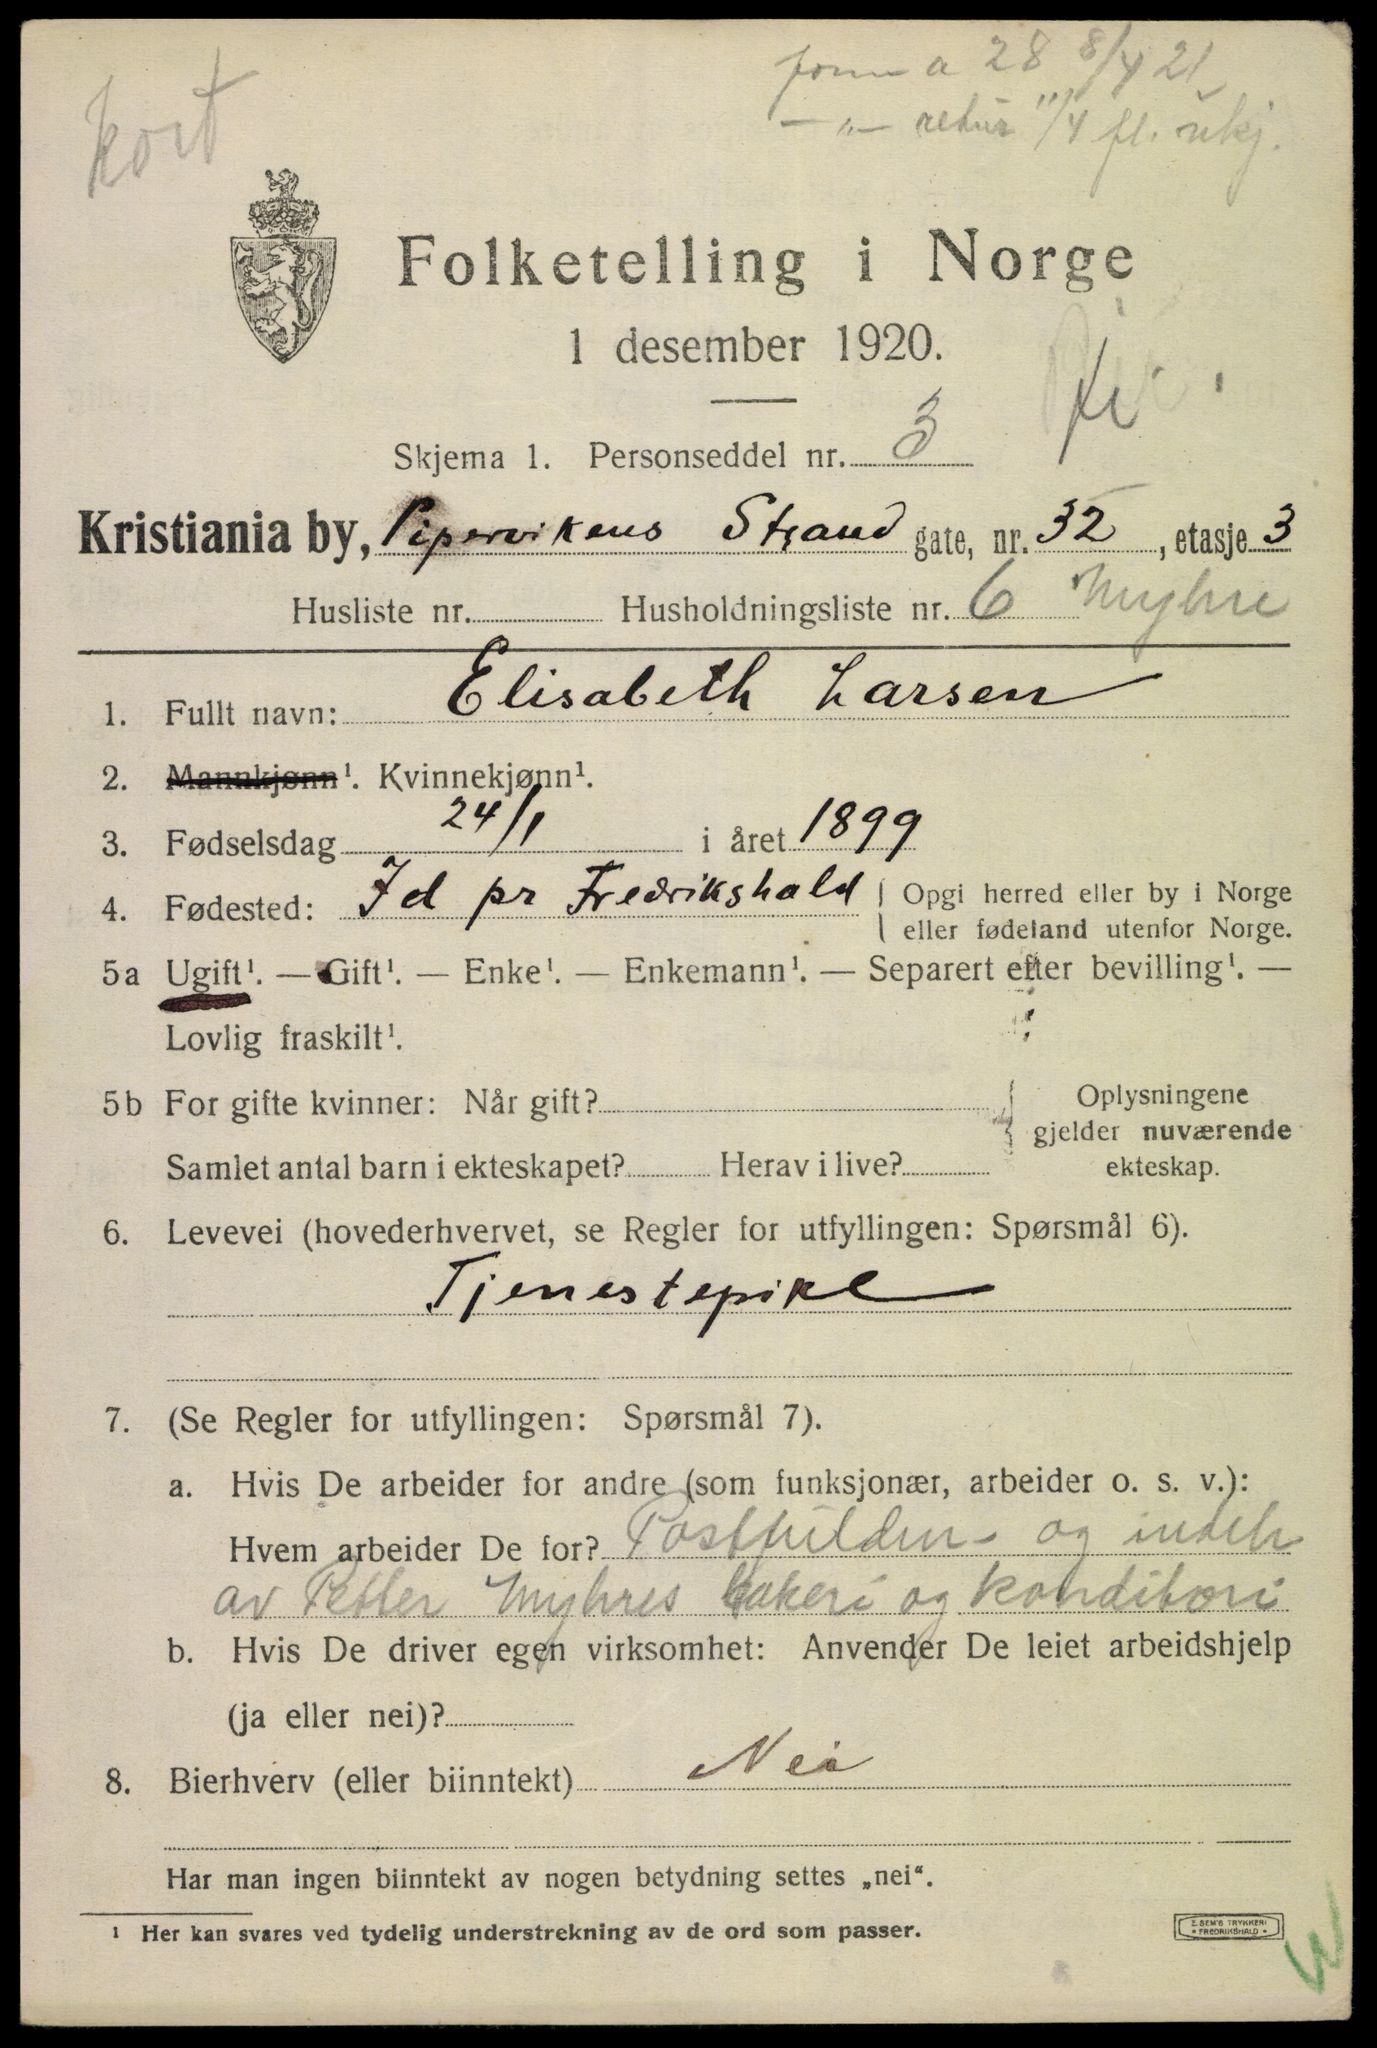 kort
form a 28 8/4 21
— „ — retur 11/4 fl. ukj.
Folketelling i Norge
1 desember 1920.
Skjema 1. Personseddel nr. 3
Kristiania by, Pipervikens Strand gate, nr. 32, etasje 3
Husliste nr. Husholdningsliste nr. 6 Myhre
1. Fullt navn: Elisabeth Larsen
2. Mannkjønn¹. Kvinnekjønn¹.
3. Fødselsdag 24/1 i året 1899
4. Fødested: Id pr Fredrikshald
Opgi herred eller by i Norge
eller fødeland utenfor Norge.
5a Ugift¹. — Gift¹. — Enke¹. — Enkemann¹. — Separert efter bevilling¹. —
Lovlig fraskilt¹.
5b For gifte kvinner: Når gift?
Samlet antal barn i ekteskapet? Herav i live?
Oplysningene
gjelder nuværende
ekteskap.
6. Levevei (hovederhvervet, se Regler for utfyllingen: Spørsmål 6).
Tjenestepike
7. (Se Regler for utfyllingen: Spørsmål 7).
a. Hvis De arbeider for andre (som funksjonær, arbeider o. s. v.):
Hvem arbeider De for? og indeh
av Petter Myhres bakeri og konditori
b. Hvis De driver egen virksomhet: Anvender De leiet arbeidshjelp
(ja eller nei)?
8. Bierhverv (eller biinntekt) Nei
Har man ingen biinntekt av nogen betydning settes „nei“.
¹ Her kan svares ved tydelig understrekning av de ord som passer.
E. SEM'S TRYKKERI
FREDRIKSHALD